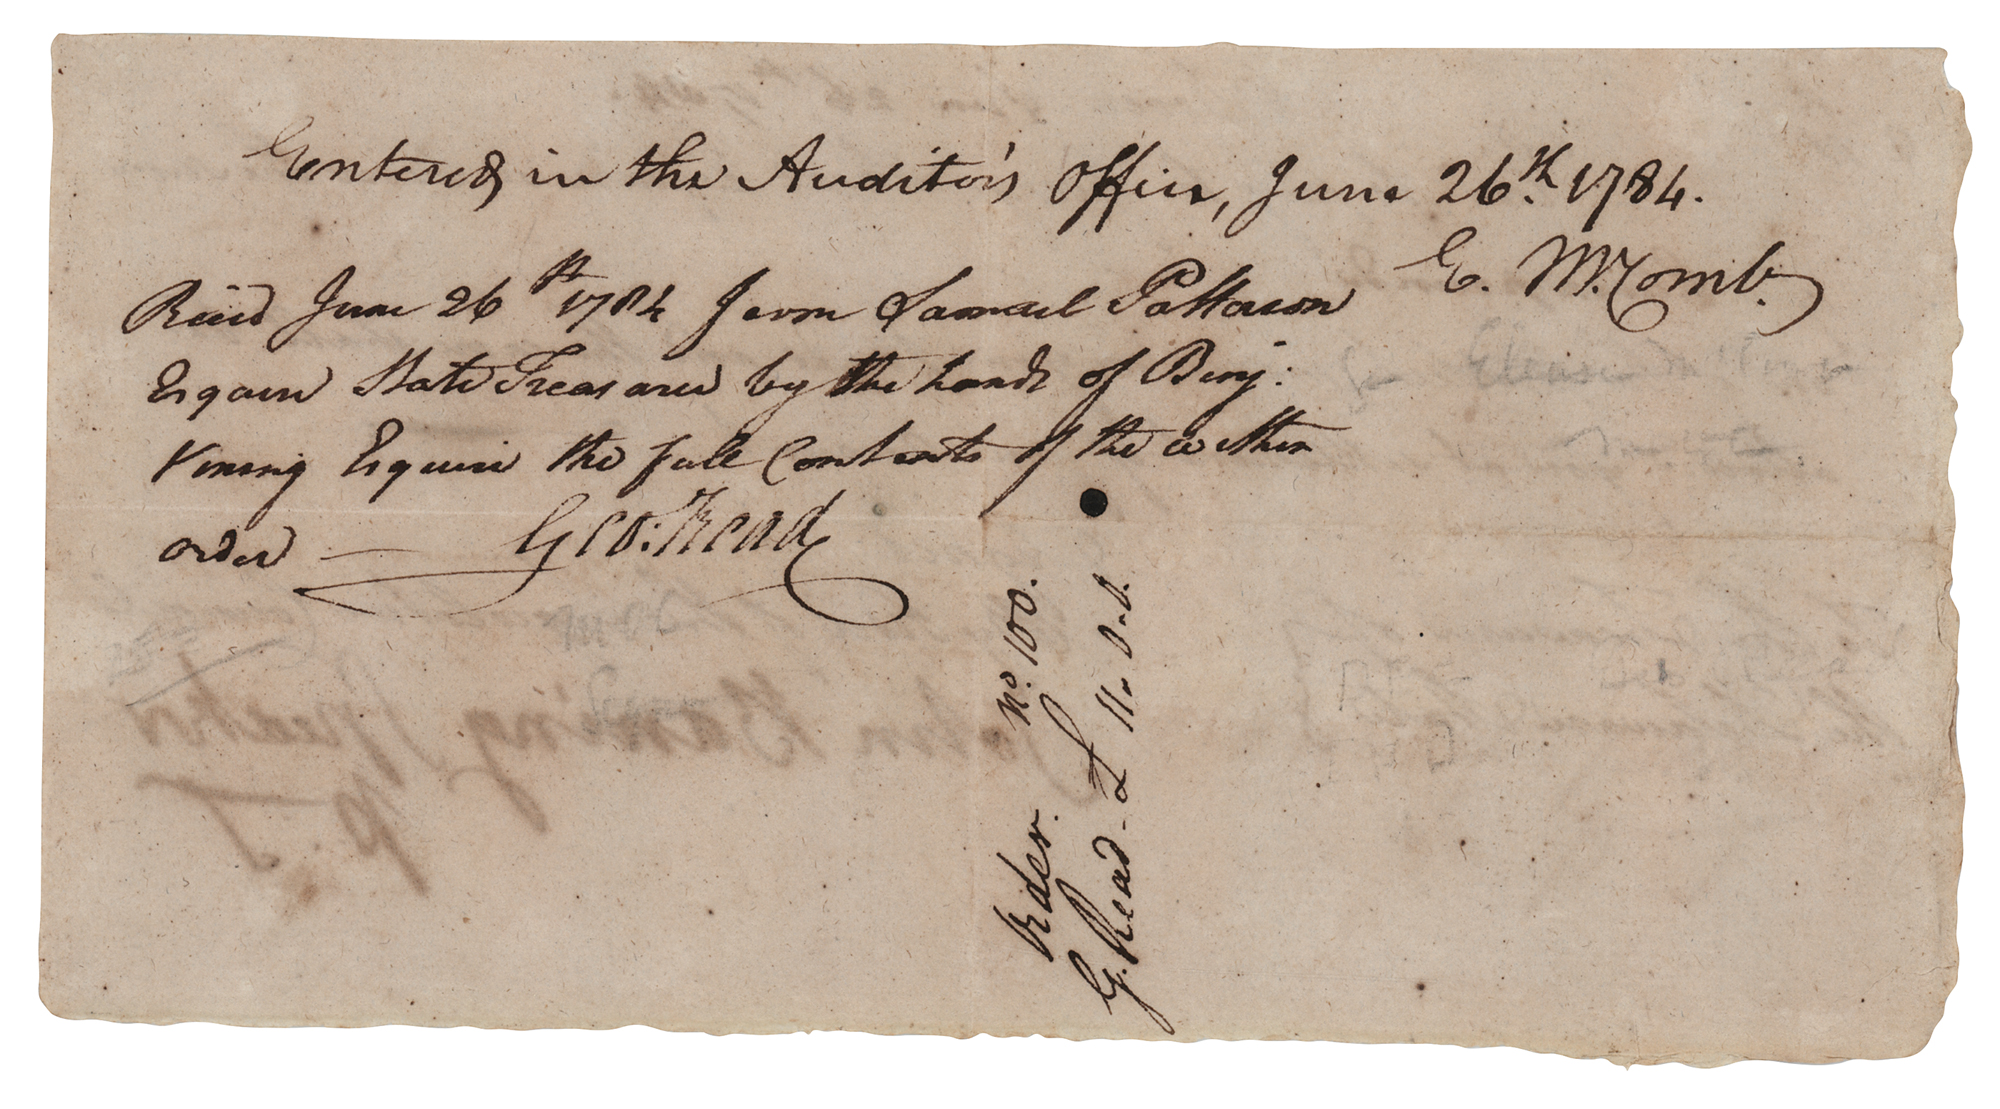 Entered, in the Auditor's Office, June 26th. 1784.
E. McComb.
Rec'd June 26th 1784 from Samuel Patterson
Esquire State Treasurer by the hands of Benj:
Vining Esquire the full Contents of the within
order — Geo: Read
Order. No. 100.
G. Read - £ 11.. 0.. 0.